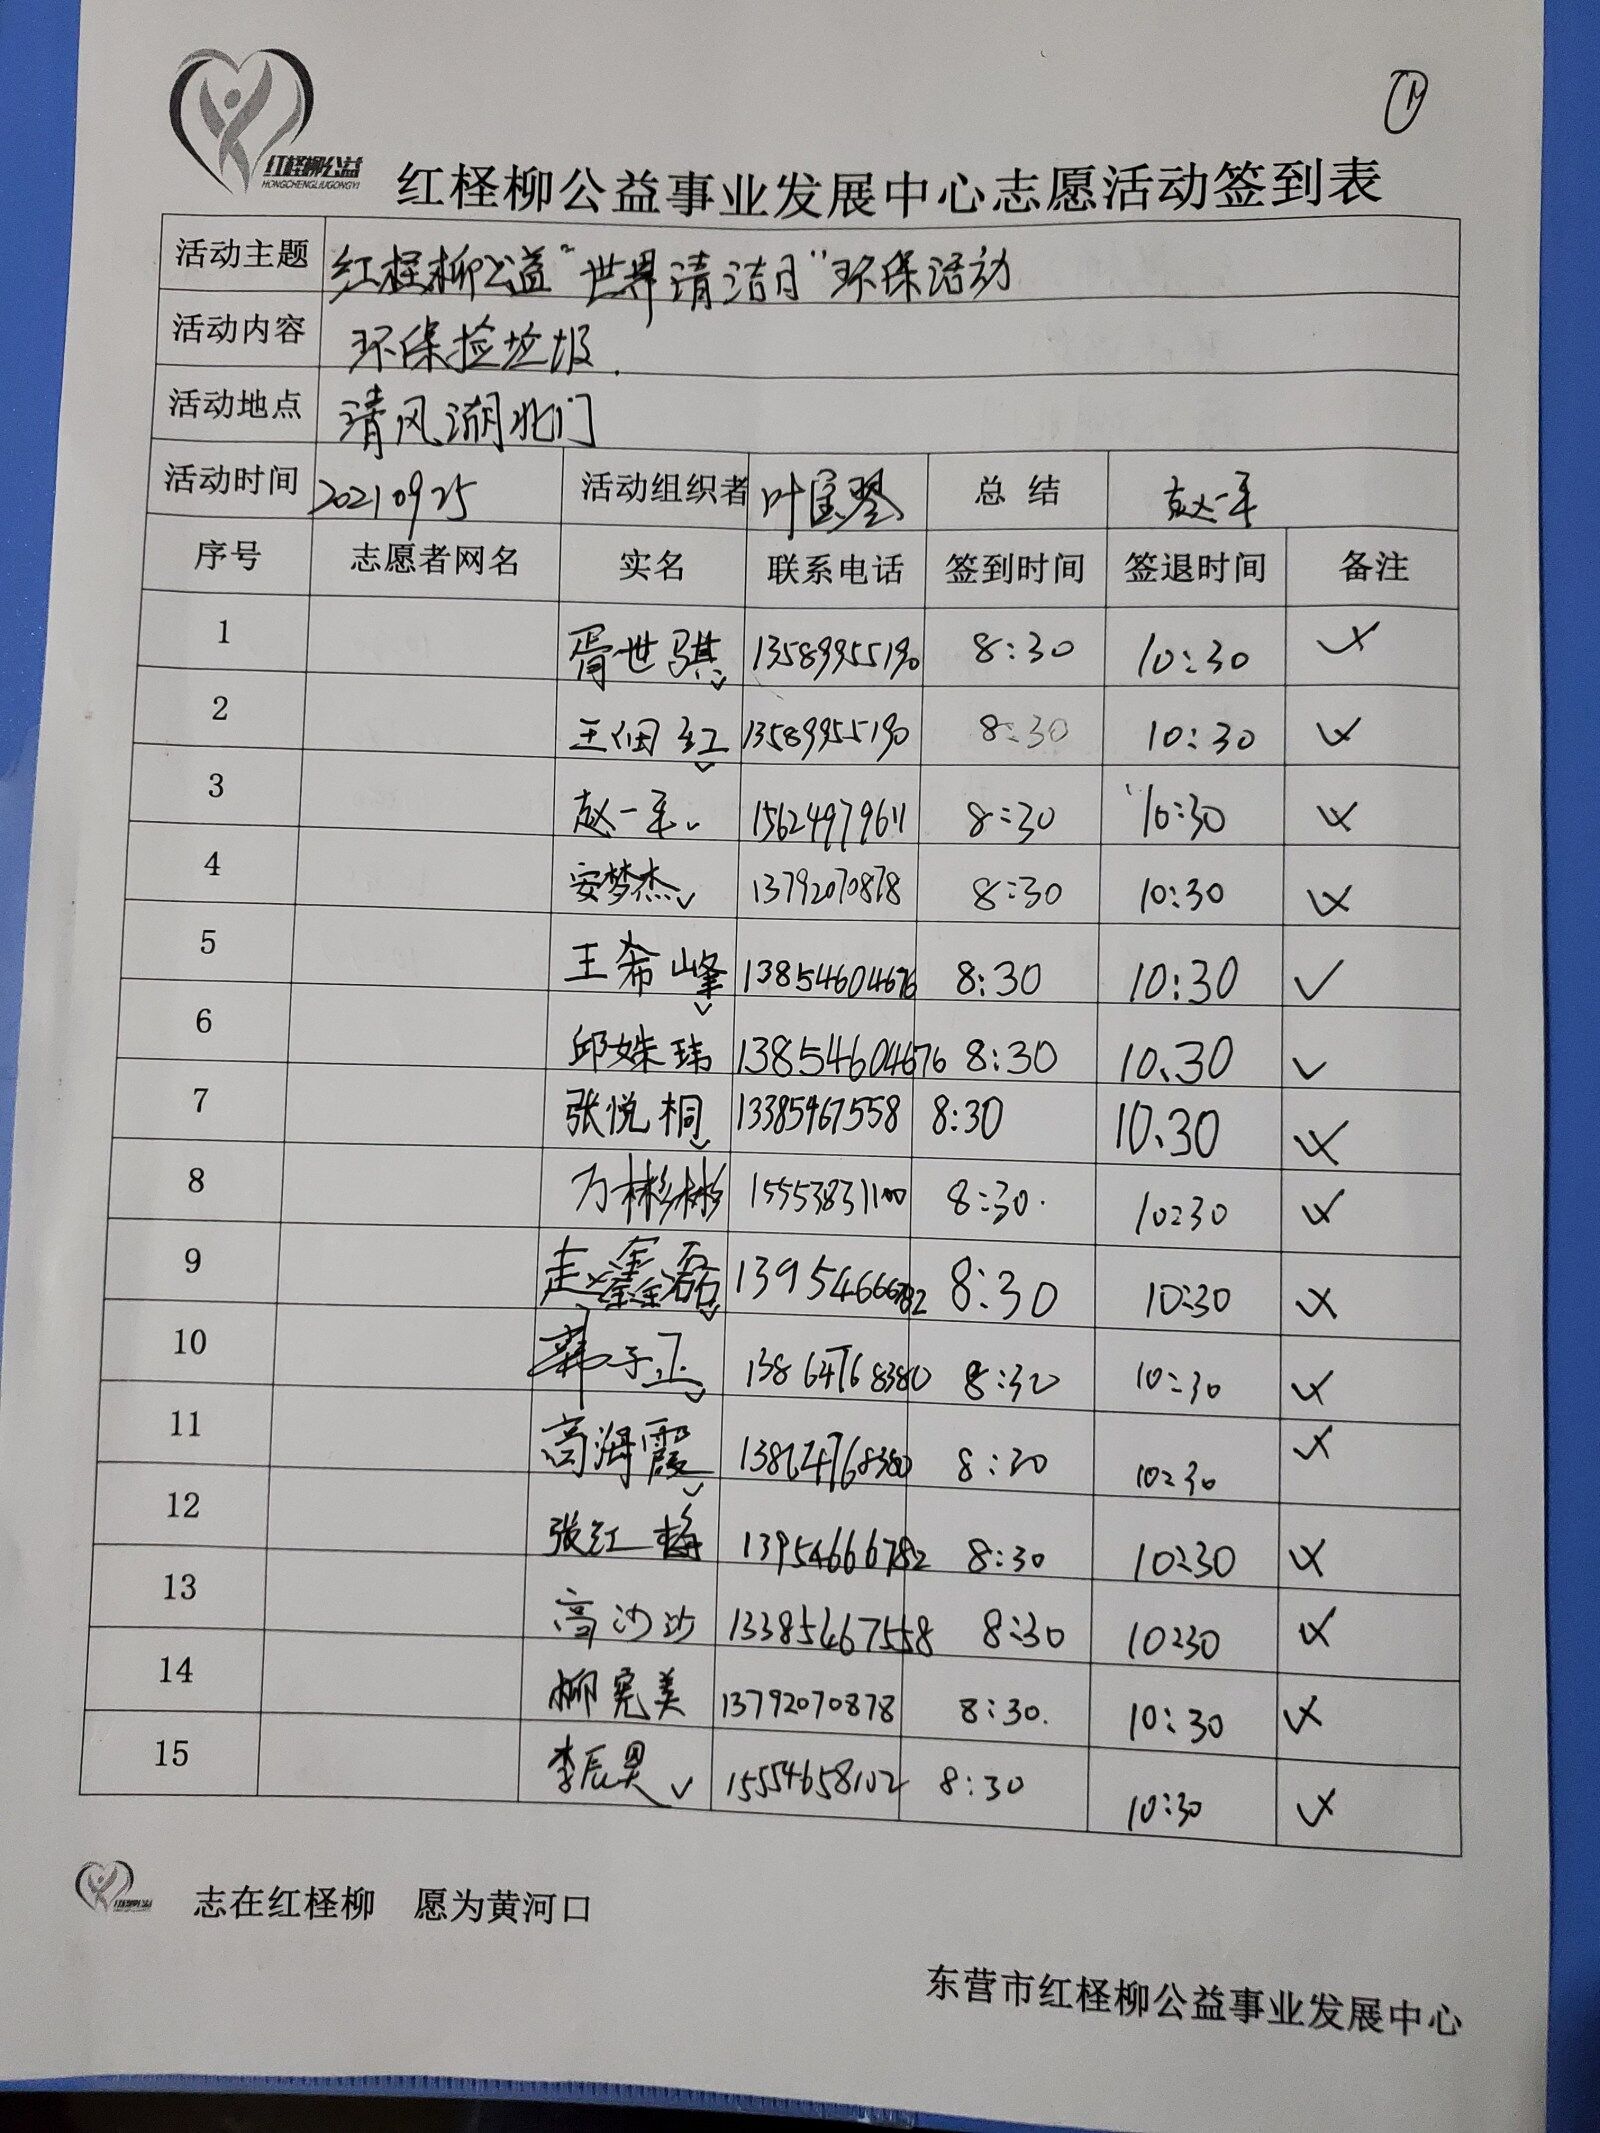 红柽柳公益
HONGCHENGLIUGONGYI
红柽柳公益事业发展中心志愿活动签到表
活动主题 红柽柳公益"世界清洁日"环保活动
活动内容 环保捡垃圾.
活动地点 清风湖北门
活动时间 20210925 活动组织者 叶宝琴 总结 赵一平
序号 志愿者网名 实名 联系电话 签到时间 签退时间 备注
1 胥世骐 13589955190 8:30 10:30
2 王伯红 13589955190 8:30 10:30
3 赵一平 15624979611 8:30 10:30
4 安梦杰 13792070878 8:30 10:30
5 王希峰 13854604676 8:30 10:30 ✓
6 邱姝玮 13854604676 8:30 10.30 ✓
7 张悦桐 13385467558 8:30 10.30
8 万彬彬 15553831100 8:30. 10:30
9 赵鑫磊 13954666782 8:30 10:30
10 韩子正 13864768380 8:30 10:30
11 高海霞 13864768380 8:30 10:30
12 张红梅 13954666782 8:30 10:30
13 高沙沙 13385467558 8:30 10:30
14 柳宪美 13792070878 8:30. 10:30
15 李辰昊 15554658102 8:30 10:30
志在红柽柳 愿为黄河口
东营市红柽柳公益事业发展中心